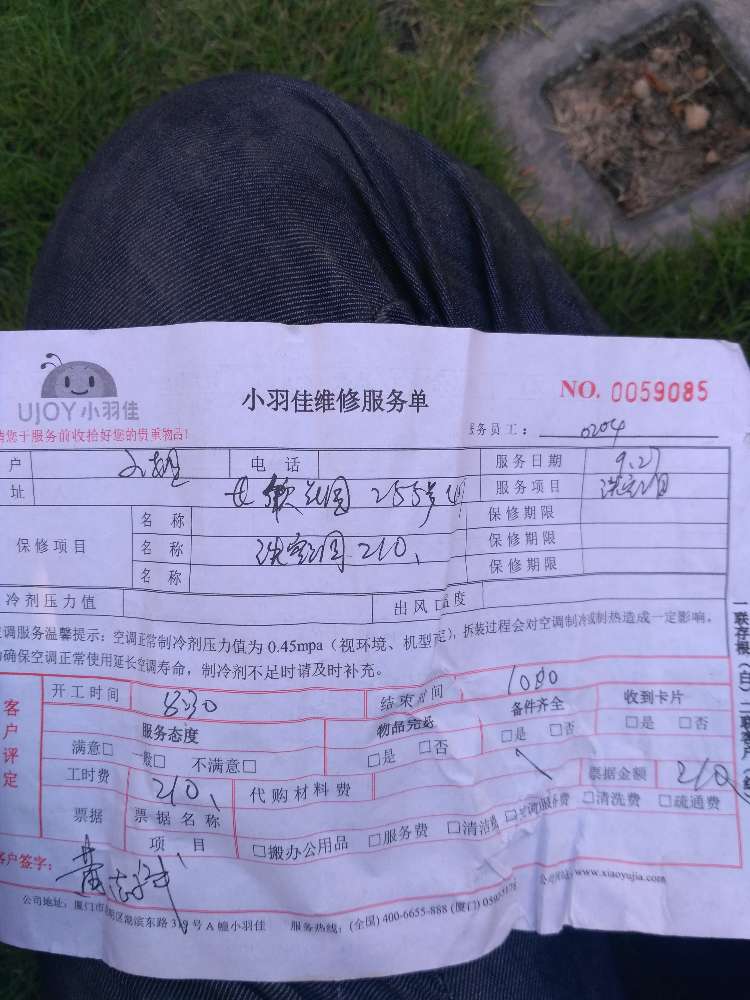 UJOY小羽佳
小羽佳维修服务单
NO. 0059085
请您于服务前收拾好您的贵重物品!
务员工: 0204
户 电话 服务日期 9.27
址 255号 服务项目 洗空调
保修项目 名称 保修期限
名称 洗空调 210、 保修期限
名称 保修期限
冷剂压力值 出风口温度
调服务温馨提示:空调正常制冷剂压力值为 0.45mpa(视环境、机型定),拆装过程会对空调制冷或制热造成一定影响。
确保空调正常使用延长空调寿命,制冷剂不足时请及时补充。
客户评定
开工时间 830 结束时间 1000
服务态度 物品完好 备件齐全 收到卡片
满意□ 一般□ 不满意□ □是 □否 □是 □否 □是 □否
工时费 210、 代购材料费 票据金额 210
票据 票据名称
项目 □搬办公用品 □服务费 □清洁费 □空调服务费 □清洗费 □疏通费
客户签字:
公司网址:www.xiaoyujia.com
公司地址:厦门市 湖滨东路 319号A幢小羽佳 服务热线:(全国) 400-6655-888 (厦门)
一联存根(白)二联客户